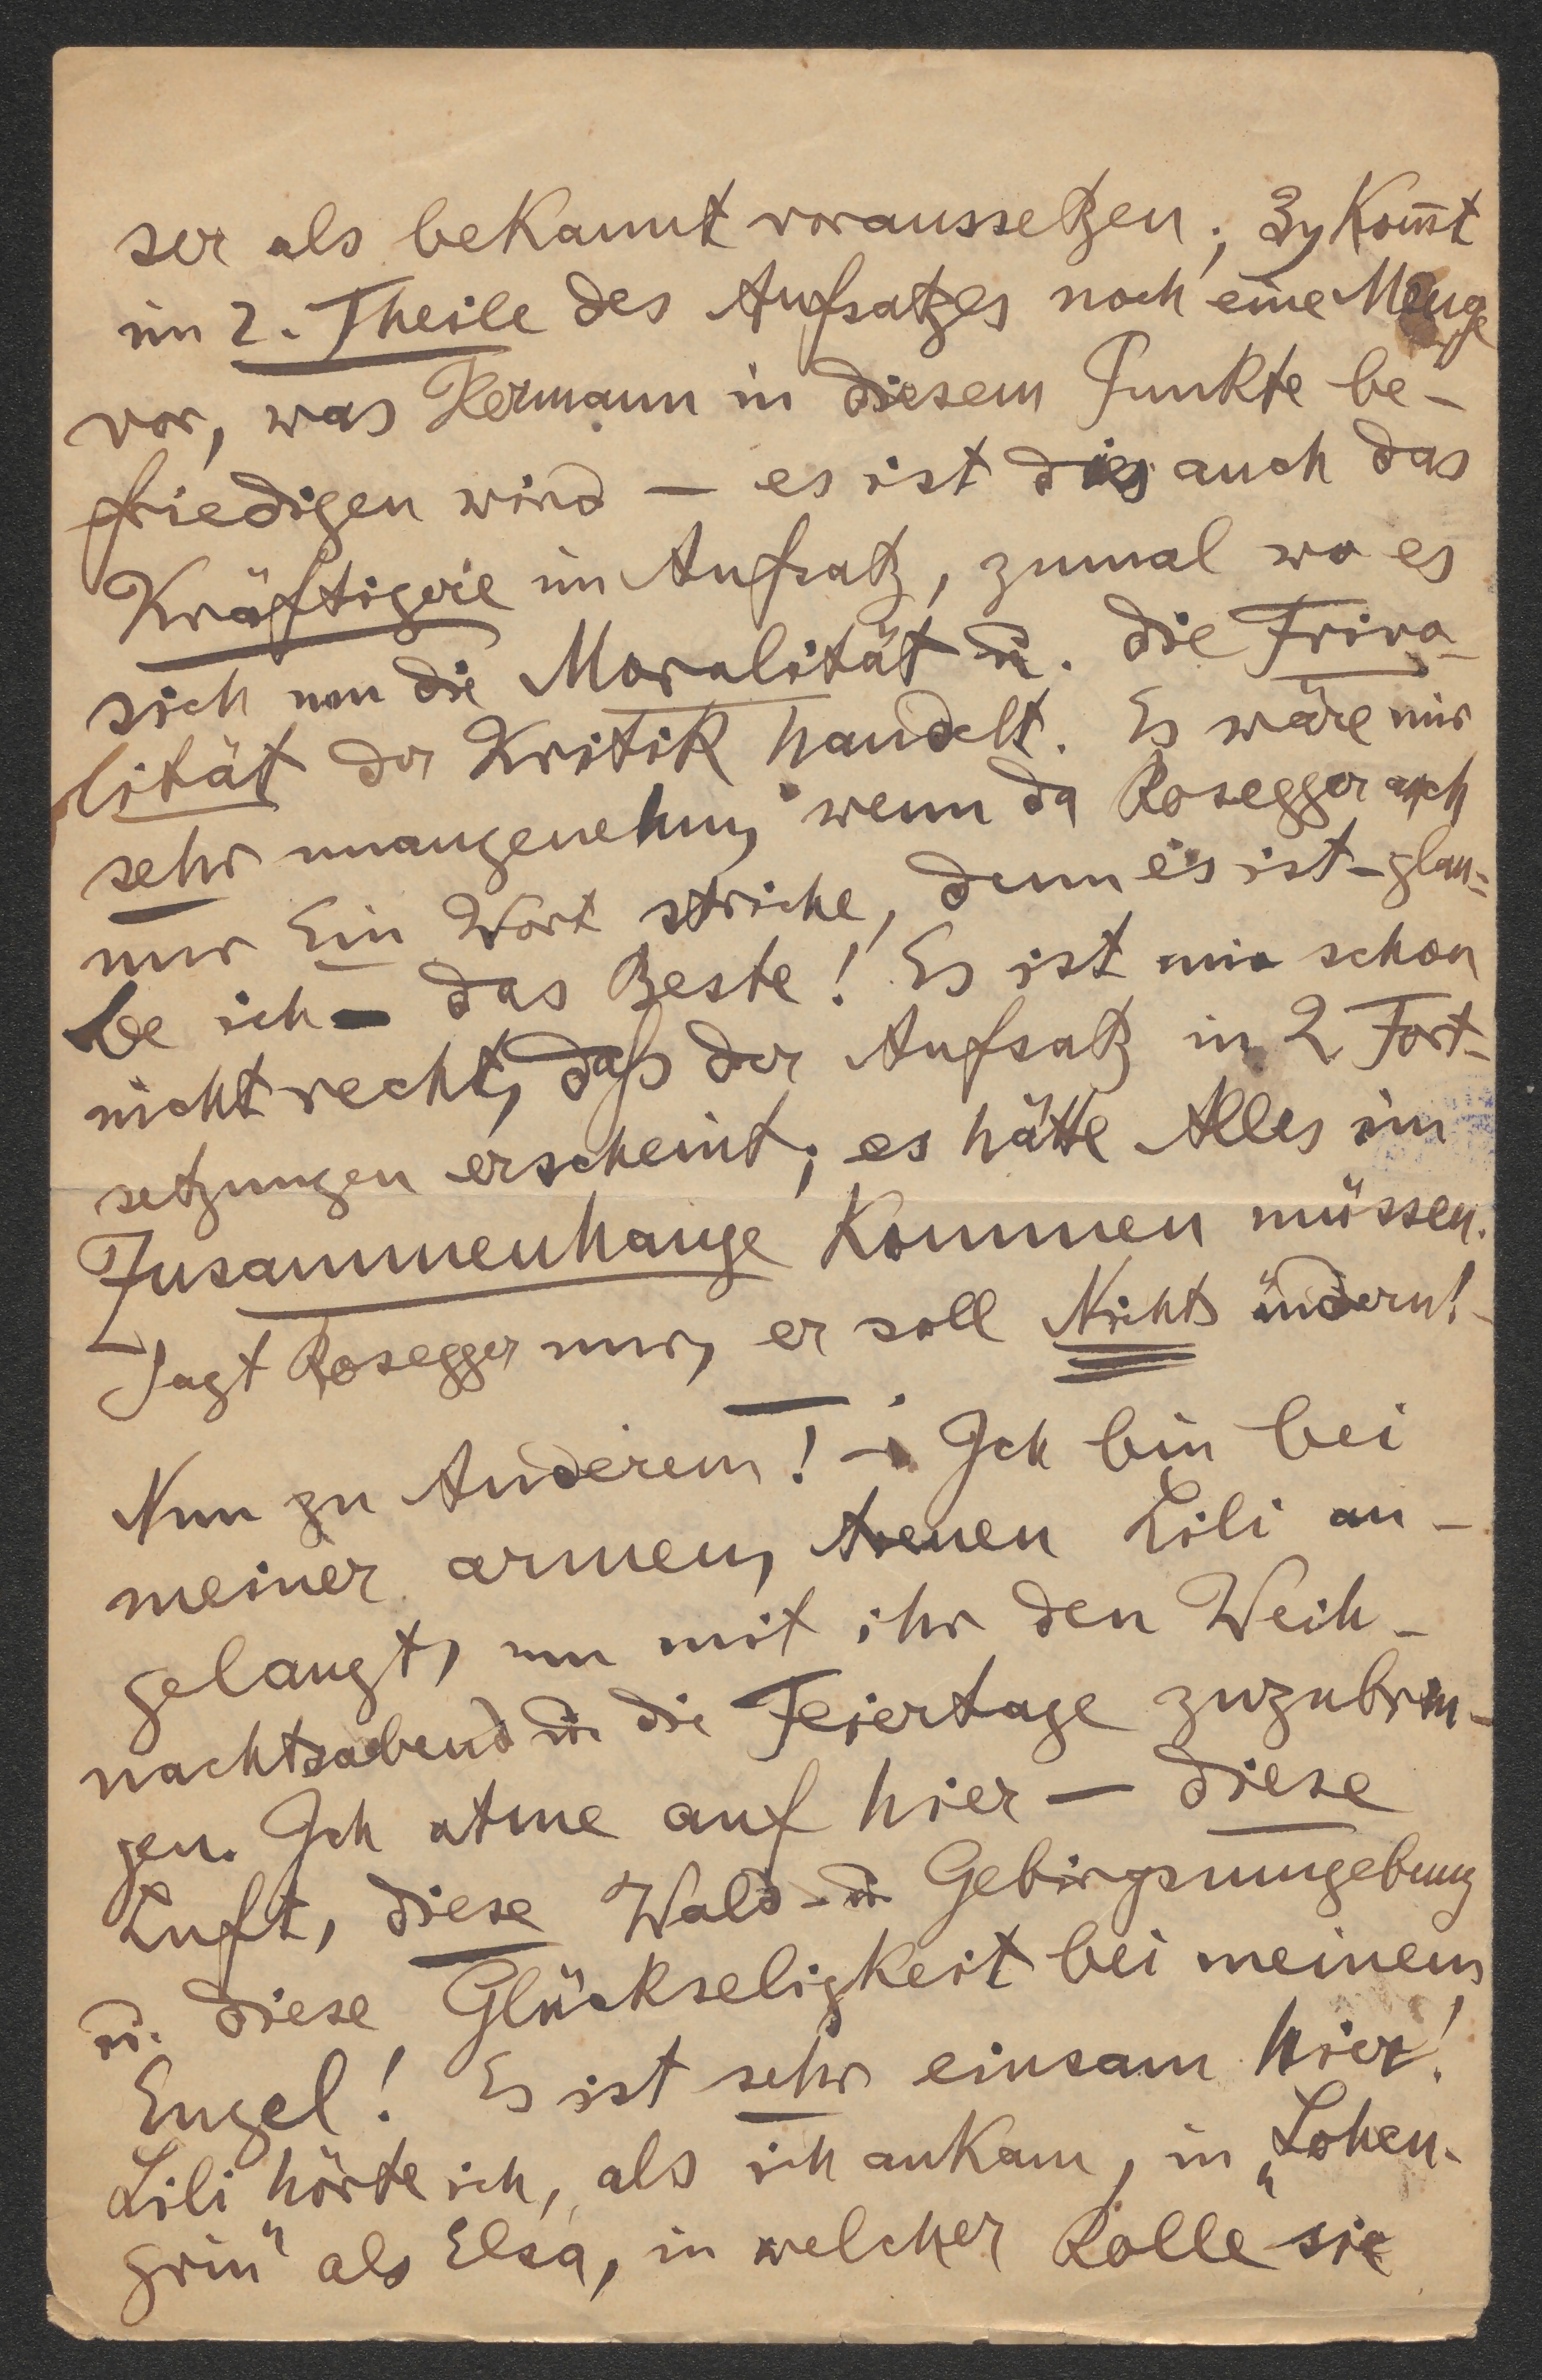 ser als bekannt voraussetzen; 3) kom̄t
im 2. Theile des Aufsatzes noch eine Menge
vor, was Hermann in diesem Punkte be-
friedigen wird — es ist dies auch das
Kräftigere im Aufsatz, zumal wo es
sich um die Moralität u. die Frivo-
lität der Kritik handelt. Es wäre mir
sehr unangenehm, wenn da Rosegger auch
nur Ein Wort striche, denn es ist - glau-
be ich - das Beste! Es ist mir schon
nicht recht, daß der Aufsatz in 2 Fort-
setzungen erscheint; es hätte Alles im
Zusammenhange kommen müssen.
Sagt Rosegger nur, er soll Nichts ändern! -
Nun zu Anderem! - Ich bin bei
meiner armen, treuen Lili an-
gelangt, um mit ihr den Weih-
nachtsabend u. die Feiertage zuzubrin-
gen. Ich atme auf hier — diese
Luft, diese Wald- u. Gebirgsumgebung
u. diese Glückseligkeit bei meinem
Engel! Es ist sehr einsam hier!
Lili hörte ich, als ich ankam, in „Lohen-
grin" als Elsa, in welcher Rolle sie